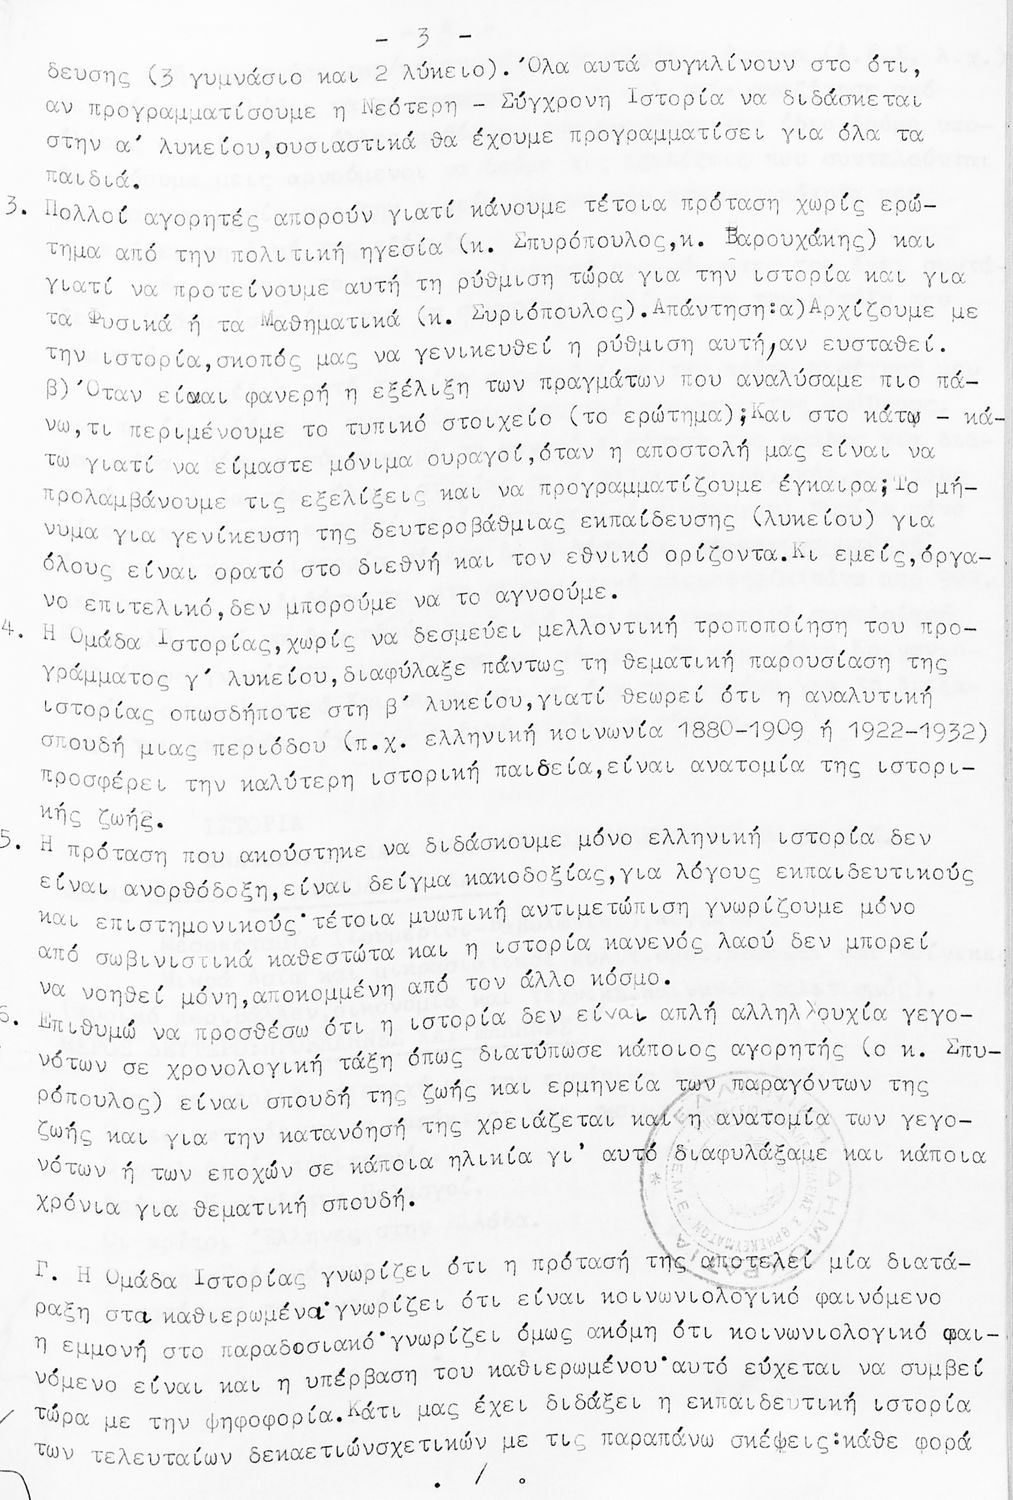 - 3 -
δευσης (3 γυμνάσιο και 2 λύκειο). Όλα αυτά συγκλίνουν στο ότι,
αν προγραμματίσουμε η Νεότερη - Σύγχρονη Ιστορία να διδάσκεται
στην α' λυκείου,ουσιαστικά θα έχουμε προγραμματίσει για όλα τα
παιδιά.
3. Πολλοί αγορητές απορούν γιατί κάνουμε τέτοια πρόταση χωρίς ερώ-
τημα από την πολιτική ηγεσία (κ. Σπυρόπουλος,κ. Βαρουχάκης) και
γιατί να προτείνουμε αυτή τη ρύθμιση τώρα για την ιστορία και για
τα Φυσικά ή τα Μαθηματικά (κ. Συριόπουλος).Απάντηση:α)Αρχίζουμε με
την ιστορία,σκοπός μας να γενικευθεί η ρύθμιση αυτή,αν ευσταθεί.
β)Όταν είναι φανερή η εξέλιξη των πραγμάτων που αναλύσαμε πιο πά-
νω,τι περιμένουμε το τυπικό στοιχείο (το ερώτημα);Και στο κάτω - κά-
τω γιατί να είμαστε μόνιμα ουραγοί,όταν η αποστολή μας είναι να
προλαμβάνουμε τις εξελίξεις και να προγραμματίζουμε έγκαιρα;Το μή-
νυμα για γενίκευση της δευτεροβάθμιας εκπαίδευσης (λυκείου) για
όλους είναι ορατό στο διεθνή και τον εθνικό ορίζοντα.Κι εμείς,όργα-
νο επιτελικό,δεν μπορούμε να το αγνοούμε.
4. Η Ομάδα Ιστορίας,χωρίς να δεσμεύει μελλοντική τροποποίηση του προ-
γράμματος γ' λυκείου,διαφύλαξε πάντως τη θεματική παρουσίαση της
ιστορίας οπωσδήποτε στη β' λυκείου,γιατί θεωρεί ότι η αναλυτική
σπουδή μιας περιόδου (π.χ. ελληνική κοινωνία 1880-1909 ή 1922-1932)
προσφέρει την καλύτερη ιστορική παιδεία,είναι ανατομία της ιστορι-
κής ζωής.
5. Η πρόταση που ακούστηκε να διδάσκουμε μόνο ελληνική ιστορία δεν
είναι ανορθόδοξη,είναι δείγμα κακοδοξίας,για λόγους εκπαιδευτικούς
και επιστημονικούς·τέτοια μυωπική αντιμετώπιση γνωρίζουμε μόνο
από σωβινιστικά καθεστώτα και η ιστορία κανενός λαού δεν μπορεί
να νοηθεί μόνη,αποκομμένη από τον άλλο κόσμο.
6. Επιθυμώ να προσθέσω ότι η ιστορία δεν είναι απλή αλληλουχία γεγο-
νότων σε χρονολογική τάξη όπως διατύπωσε κάποιος αγορητής (ο κ. Σπυ-
ρόπουλος) είναι σπουδή της ζωής και ερμηνεία των παραγόντων της
ζωής και για την κατανόησή της χρειάζεται και η ανατομία των γεγο-
νότων ή των εποχών σε κάποια ηλικία γι' αυτό διαφυλάξαμε και κάποια
χρόνια για θεματική σπουδή.
Γ. Η Ομάδα Ιστορίας γνωρίζει ότι η πρότασή της αποτελεί μία διατά-
ραξη στα καθιερωμένα·γνωρίζει ότι είναι κοινωνιολογικό φαινόμενο
η εμμονή στο παραδοσιακό·γνωρίζει όμως ακόμη ότι κοινωνιολογικό φαι-
νόμενο είναι και η υπέρβαση του καθιερωμένου·αυτό εύχεται να συμβεί
τώρα με την ψηφοφορία.Κάτι μας έχει διδάξει η εκπαιδευτική ιστορία
των τελευταίων δεκαετιώνσχετικών με τις παραπάνω σκέψεις:κάθε φορά
./.